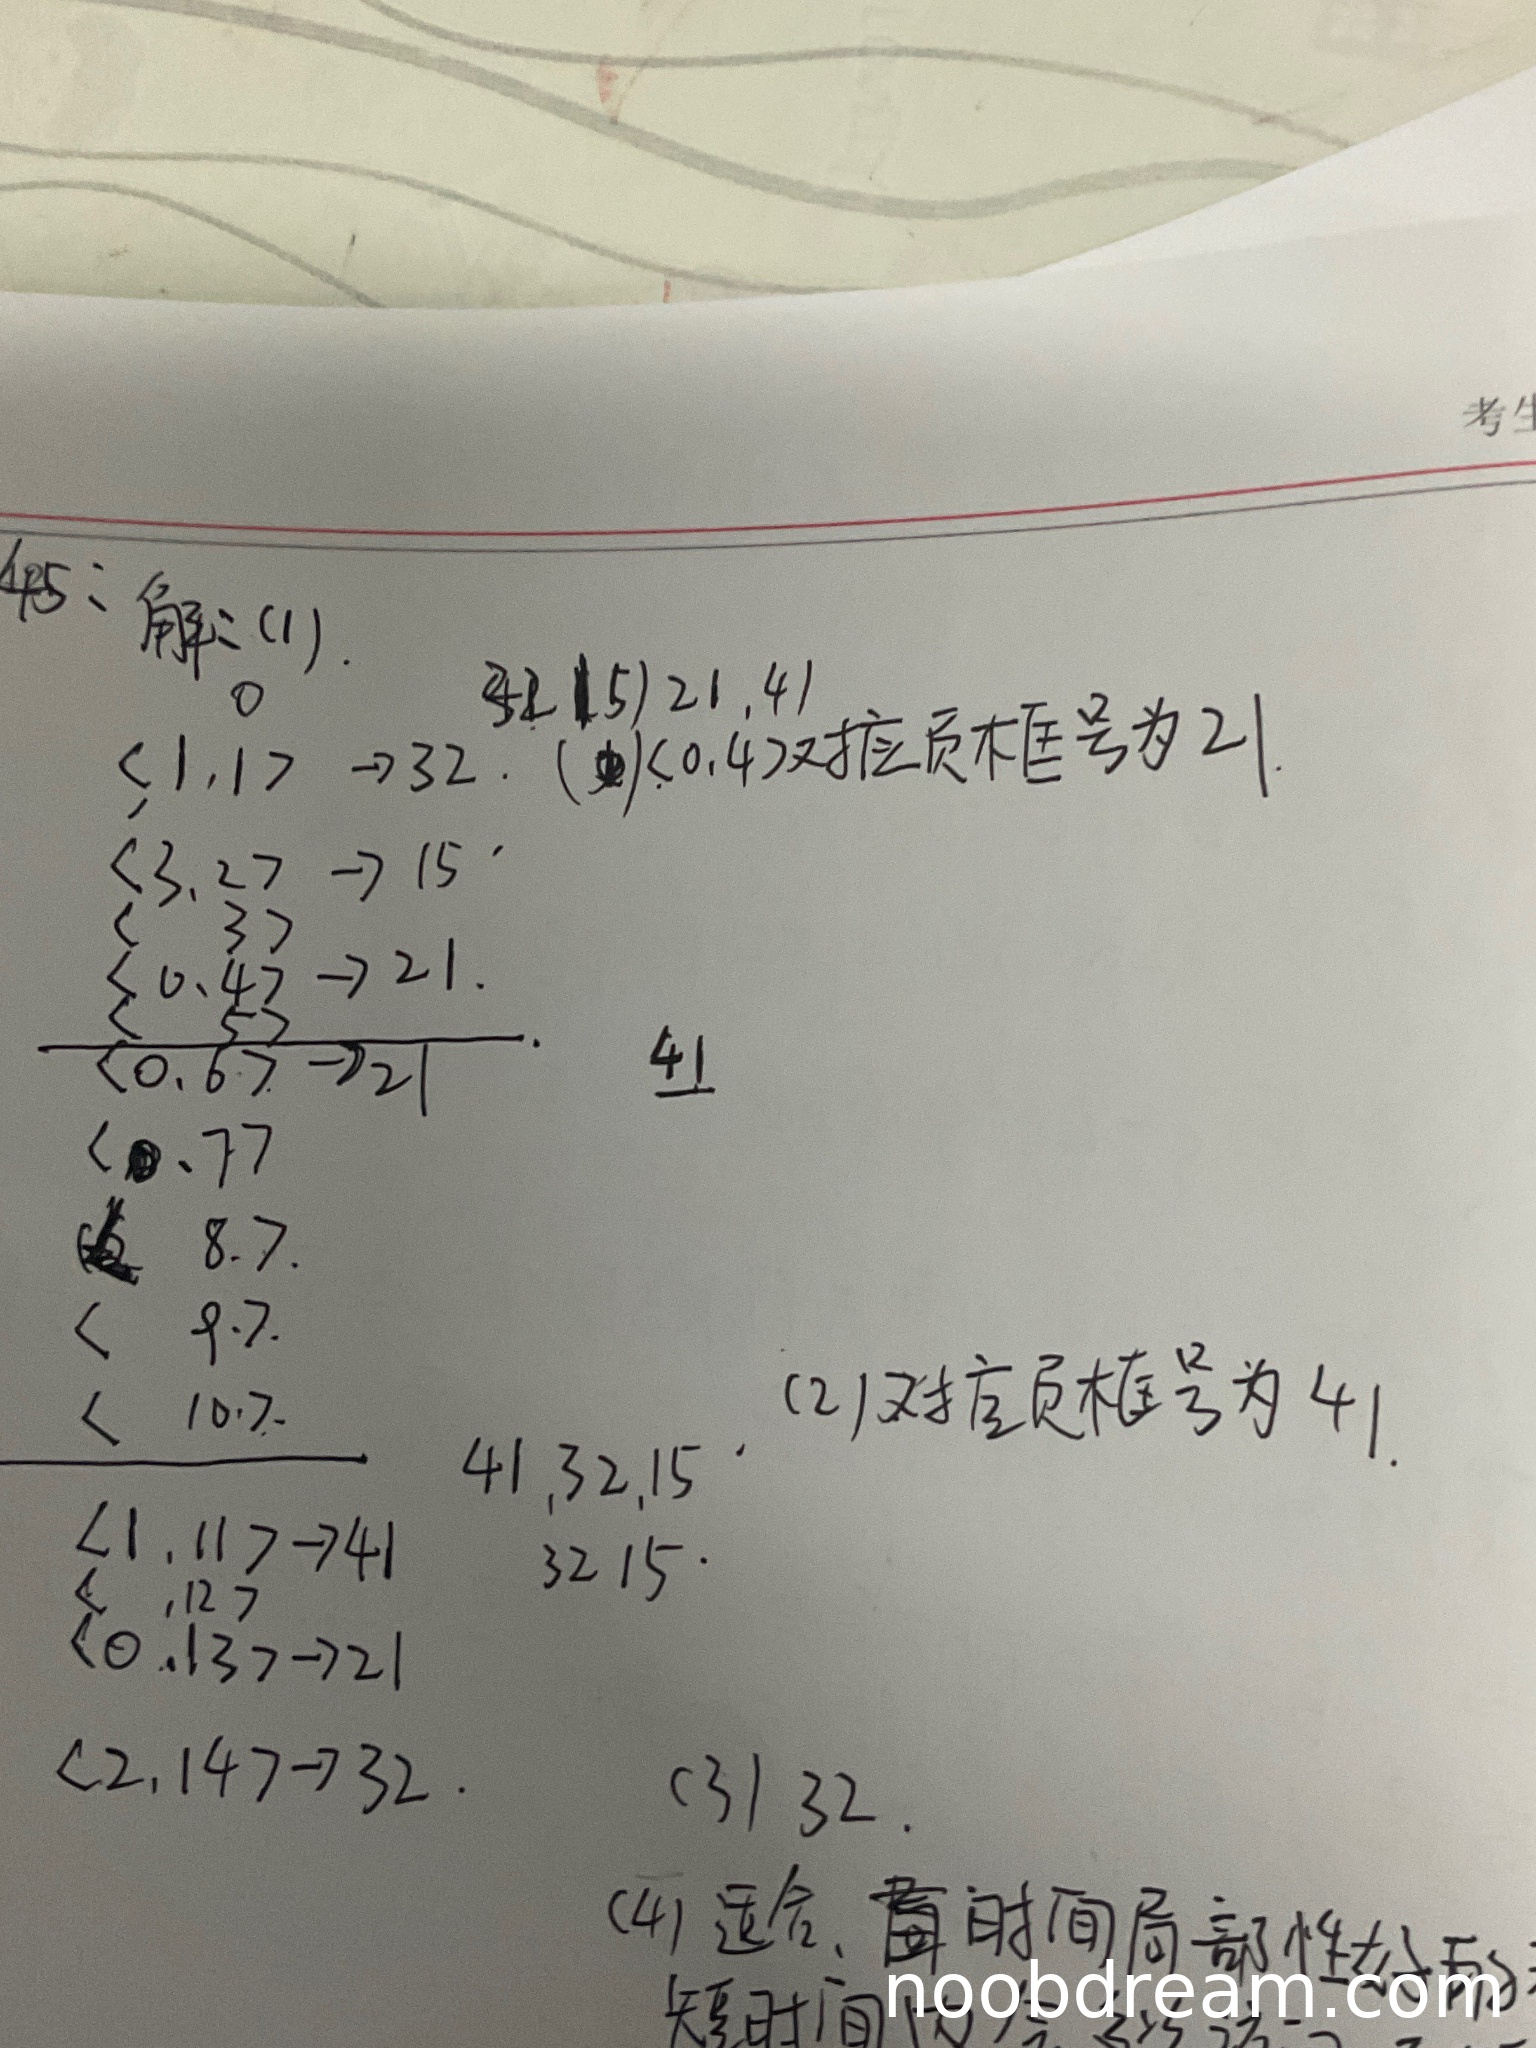 考生
45：解：(1).
0
32 15) 21,41
<1,1> →32.
( )<0.4>对应页框号为21.
<3.2> →15
< 3>
<0.4> →21.
< 5>
<0.6> →21
41
< .7>
8.>.
< 9.>.
< 10.>.
(2)对应页框号为41.
41,32,15
<1.11>→41
32 15.
< .12>
<0.13>→21
<2.14>→32.
(3) 32.
(4) 适合、 时间局部性
短时间内会
noobdream.com